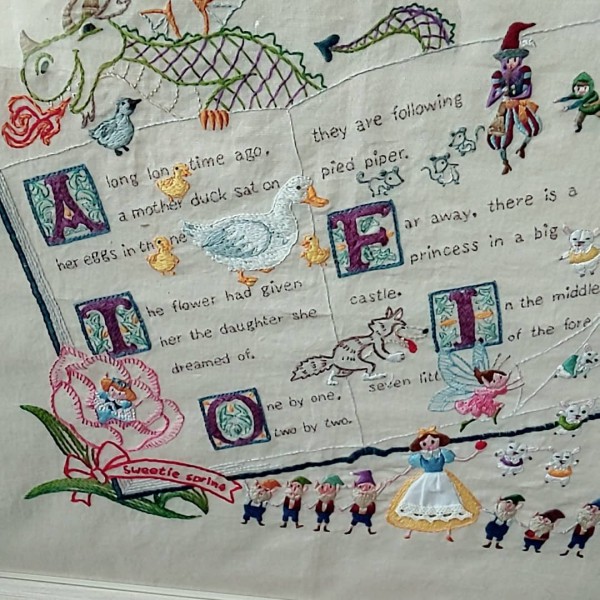 A long lon time ago,
a mother duck sat on
her eggs in the ne
The flower had given
her the daughter she
dreamed of.
One by one,
two by two.
they are following
pied piper.
Far away, there is a
princess in a big
castle.
In the middle
of the fore
seven litt
Sweetie spring